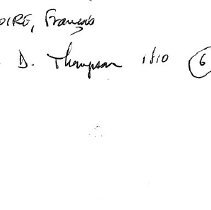 OIRE, François
D. Thompson 1/10 6